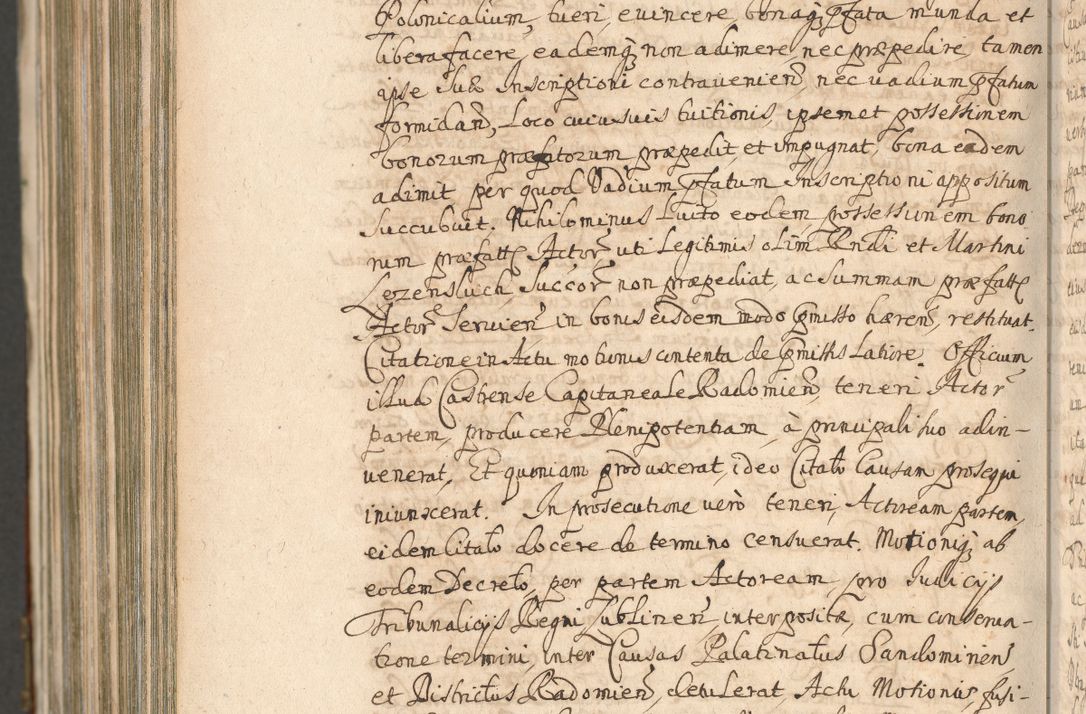 Polonicalium, tueri, euincere, bonaq; pfata munda et
libera facere, eademq; non adimere, nec præpedire, tamen
ipse suæ Inscriptioni contraveniens, nec vadium pfatum
formidans, Loco cuiusuis tuitionis, ipsemet possessionem
bonorum præfatorum præpedit, et impugnat, bona eadem
adimit, per quod Vadium pfatum Inscriptioni appositum
succubuit. Nihilominus Luito eodem, possessionem bono
rum præfatt Actor, uti Legitimis olim Rndi et Martini
Lezenskich, Succor non præpediat, ac summam præfatt
Actor Servien in bonis eisdem modo pmisso hæren, restituat.
Citatione in Actu motionis contenta de pmissis Latiore. Officium
illud Castrense Capitaneale Radomien teneri Actor
partem, producere Plenipotentiam, à principali suo adin-
venerat, Et quoniam produxerat, ideo Citato Causam prosequi
iniunxerat. In prosecutione verò teneri, Actoream partem,
eidem Citato docere de termino censuerat. Motioniq; ab
eodem Decreto, per partem Actoream, pro Iudicijs
Tribunalicijs Regni Lublinen, interpositæ, cum conserua-
tione termini, inter Causas Palatinatus Sandomirien,
et Districtus Radomien, detulerat, Actu Motionis, fusi-